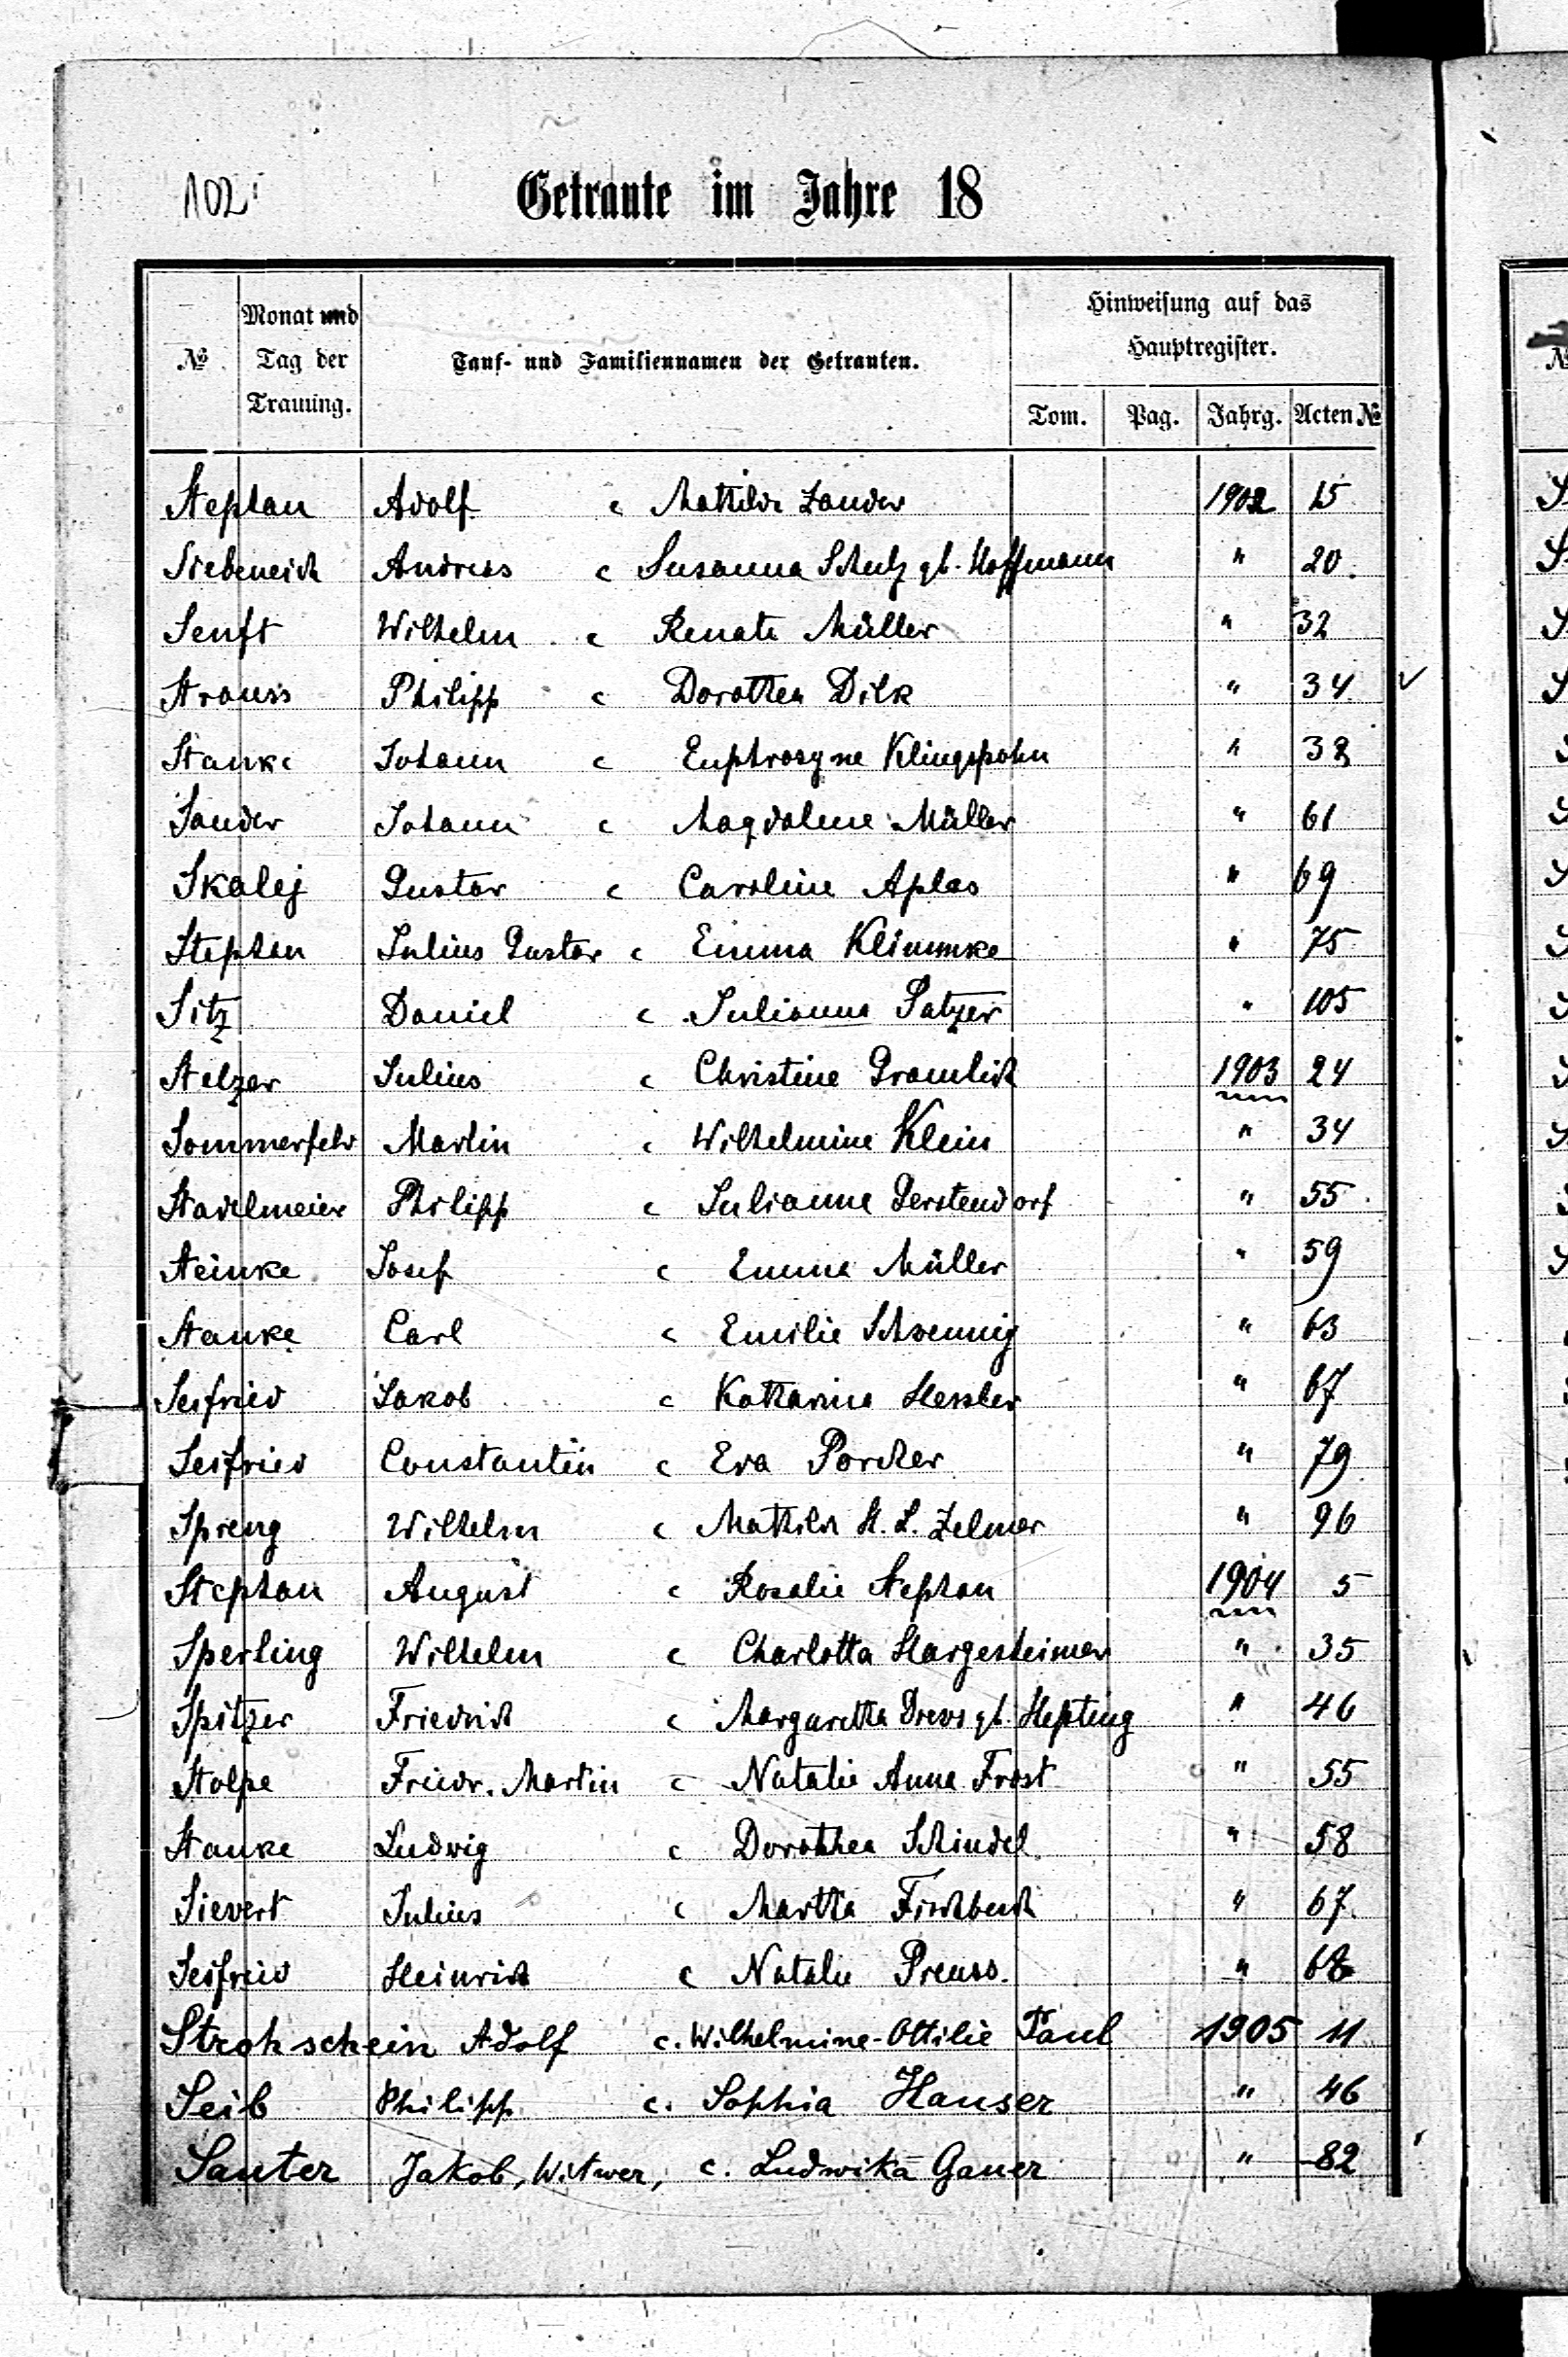 102
Getraute im Jahre 18
№ Monat und Tag der Trauung. Tauf- und Familiennamen der Getrauten. Hinweisung auf das Hauptregister.
Tom. Pag. Jahrg. Acten №
Stephan Adolf c Mathilde Zander 1902 15
Siebeneich Andreas c Susanna Schulz gb. Hoffmann " 20.
Senft Wilhelm c Renate Müller " 32
Strauss Philipp c Dorothea Dilk " 34
Stanke Johann c Euphrosyne Klingspohn " 38
Sander Johann c Magdalene Müller " 61
Skalej Gustav c Caroline Aplas " 69
Stephan Julius Gustav c Emma Klimmke " 75
Sitz Daniel c Julianna Patzer " 105
Stelzer Julius c Christine Gramlich 1903 24
Sommerfeld Martin c Wilhelmine Klein " 34
Stadelmeier Philipp c Julianne Gerstendorf " 55
Steinke Josef c Emma Müller " 59
Stanke Carl c Emilie Schoennig " 63
Seifried Jakob c Katharina Hessler " 67
Seifried Constantin c Eva Porcher " 79
Spreng Wilhelm c Mathilde H. L. Zelmer " 96
Stephan August c Rosalie Stephan 1904 5
Sperling Wilhelm c Charlotta Hargesheimer " 35
Spitzer Friedrich c Margaretha Drews gb. Hepting " 46
Stolpe Friedr. Martin c Natalie Anna Frost " 55
Stanke Ludwig c Dorothea Schindel " 58
Sievert Julius c Martha Fischbuch " 67.
Seifried Heinrich c Natalie Preuss. "
Strohschein Adolf c. Wilhelmine-Ottilie Paul 1905 11
Seib Philipp c. Sophia Hauser " 46
Sauter Jakob, Witwer, c. Ludwika Gauer " 82